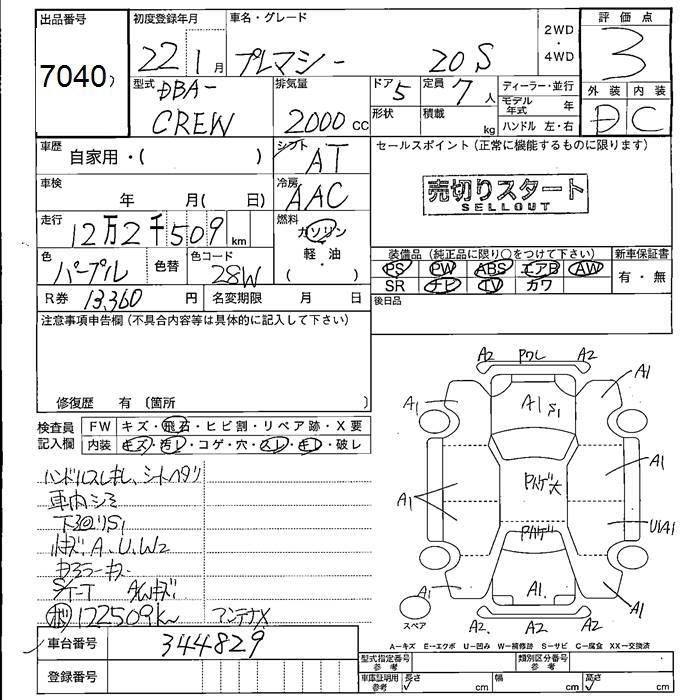 出品番号
7040
初度登録年月
22年1月
車名・グレード
プレマシー 20S
2WD
・
4WD
評価点
3
型式
DBA-
CREW
排気量
2000 CC
ドア
5
定員
7人
形状
積載
kg
ディーラー・並行
モデル年式 年
ハンドル 左・右
外装
内装
D
C
車歴
自家用・( )
シフト
AT
車検
年 月( 日)
冷房
AAC
走行
12万2千509km
燃料
ガソリン
・
軽・油
( )
色
パープル
色替
色コード
28W
R券 13,360 円
名変期限 月 日
セールスポイント(正常に機能するものに限ります)
売切りスタート
SELLOUT
装備品(純正品に限り○をつけて下さい)
新車保証書
PS PW ABS エアB AW
SR ナビ TV カワ
有・無
後日品
注意事項申告欄(不具合内容等は具体的に記入して下さい)
修復歴 有〔箇所 〕
検査員
記入欄
FW キズ・飛石・ヒビ割・リペア跡・X要
内装 キズ・汚レ・コゲ・穴・スレ・キレ・破レ
ハンドルスレキレ、シートヘタリ
車内シミ
下廻りS1
小キズ、A、U、W2
S/T-T
ボ 122509km アンテナX
車台番号 344829
登録番号
A2 PクレA2
A1
A1
A1 S1
Pハゲ大
A1
A1
UA1
Pハゲ
A1
A1
A1
A2 A2 A2
スペア
A−キズ E−エクボ U−凹み W−補修跡 S−サビ C−腐食 XX−交換済
型式指定番号
参考
類別区分番号
参考
車庫証明用
参考
長さ cm
幅 cm
高さ cm